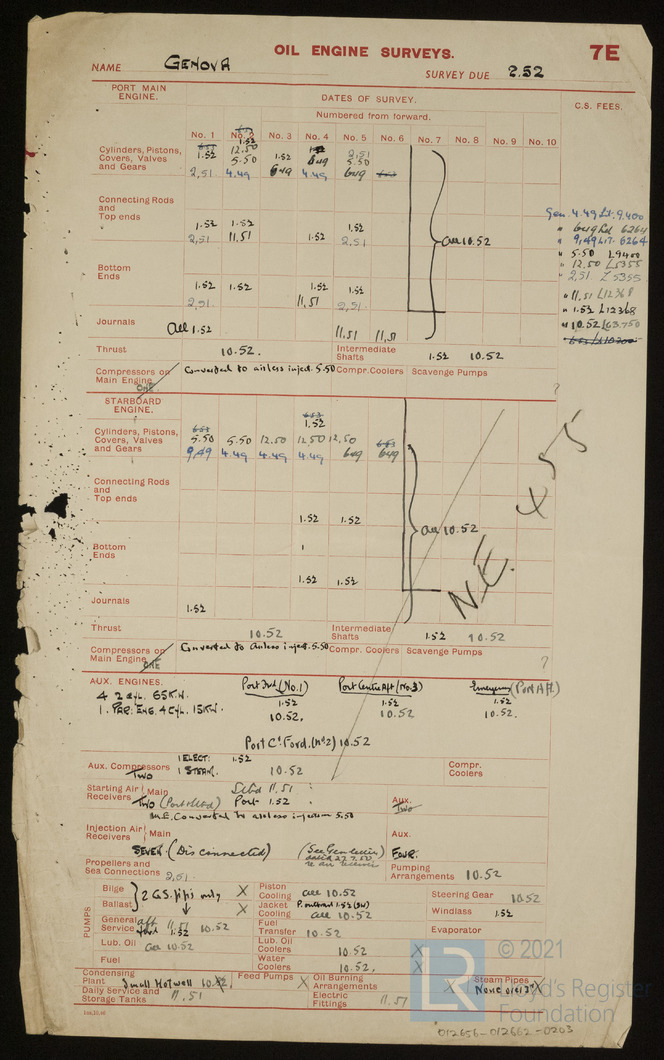 OIL ENGINE SURVEYS.
7E
NAME GENOVA
SURVEY DUE 2.52
PORT MAIN ENGINE.
DATES OF SURVEY.
C.S. FEES.
Numbered from forward.
No. 1 No. 2 No. 3 No. 4 No. 5 No. 6 No. 7 No. 8 No. 9 No. 10
Cylinders, Pistons, 1.52 12.50 2,51
Covers, Valves 5.50 1.52 649 5.50
and Gears 2,51 4.49 649 4.49 649
Connecting Rods
and
Top ends
1.52 1.52 1.52
2,51 11,51 1.52 2,51
all 10.52
Gen. 4.49 Lt. 9,400
" 649 6264
" 9,49 LIT. 6264
" 5.50 L9400
" 12.50 L5355
" 2,51 L5355
" 11,51 L12368
" 1.52 L12368
" 10.52 L63.750
Bottom
Ends
1.52 1.52 1.52 1.52
2,51. 11,51 2,51.
Journals all 1.52 11,51 11,51
Thrust 10.52. Intermediate Shafts 1.52 10.52
Compressors on Main Engine ONE Converted to airless inject. 5.50 Compr. Coolers Scavenge Pumps ?
STARBOARD ENGINE.
653
1.52
Cylinders, Pistons, 653 5.50 5.50 12.50 12.50 12.50 653
Covers, Valves
and Gears 9,49 4.49 4.49 4.49 649 649
Connecting Rods
and
Top ends
1.52 1.52
all 10.52
N.E. 4 55
Bottom
Ends
1.52 1.52
Journals 1.52
Thrust 10.52 Intermediate Shafts 1.52 10.52
Compressors on Main Engine ONE Converted to airless inject. 5.50 Compr. Coolers Scavenge Pumps ?
AUX. ENGINES. Port Ford (No.1) Port Centre Aft (No.3) Emergency (Port Aft)
4 2 cyl. 65 KW. 1.52 1.52 1.52
1. PAR. ENG. 4 CYL. 15KW. 10.52. 10.52 10.52.
Port Cr Ford. (No 2) 10.52
Aux. Compressors Two 1 ELECT: 1.52
1 STEAM. 10.52
Compr. Coolers
Starting Air Receivers Main Stbd 11.51
Two (Port & Stbd) Port 1.52
Aux. Two
M.E. Converted to airless injection 5.50
Injection Air Receivers Main
Aux.
SEVEN (Disconnected) (See Gen letter dated 27.7.50. re air receivers FOUR.
Propellers and Sea Connections 2,51
Pumping Arrangements 10.52
PUMPS
Bilge
Ballast
2 G.S. p/ps only X X
General Service aft 11.51 ford 1.52 10.52
Lub. Oil all 10.52
Fuel
Piston Cooling all 10.52
Jacket Cooling P. outboard 1.52 (SW) all 10.52
Fuel Transfer 10.52
Lub. Oil Coolers 10.52 X
Water Coolers 10.52. X
Steering Gear 10.52
Windlass 1.52
Evaporator
Condensing Plant Small Hotwell 10.52. Feed Pumps X
Oil Burning Arrangements X
Steam Pipes None over 3" X
Daily Service and Storage Tanks 11.51
Electric Fittings 11.51
© 2021
LR
Lloyd's Register
Foundation
012656-012662-0203